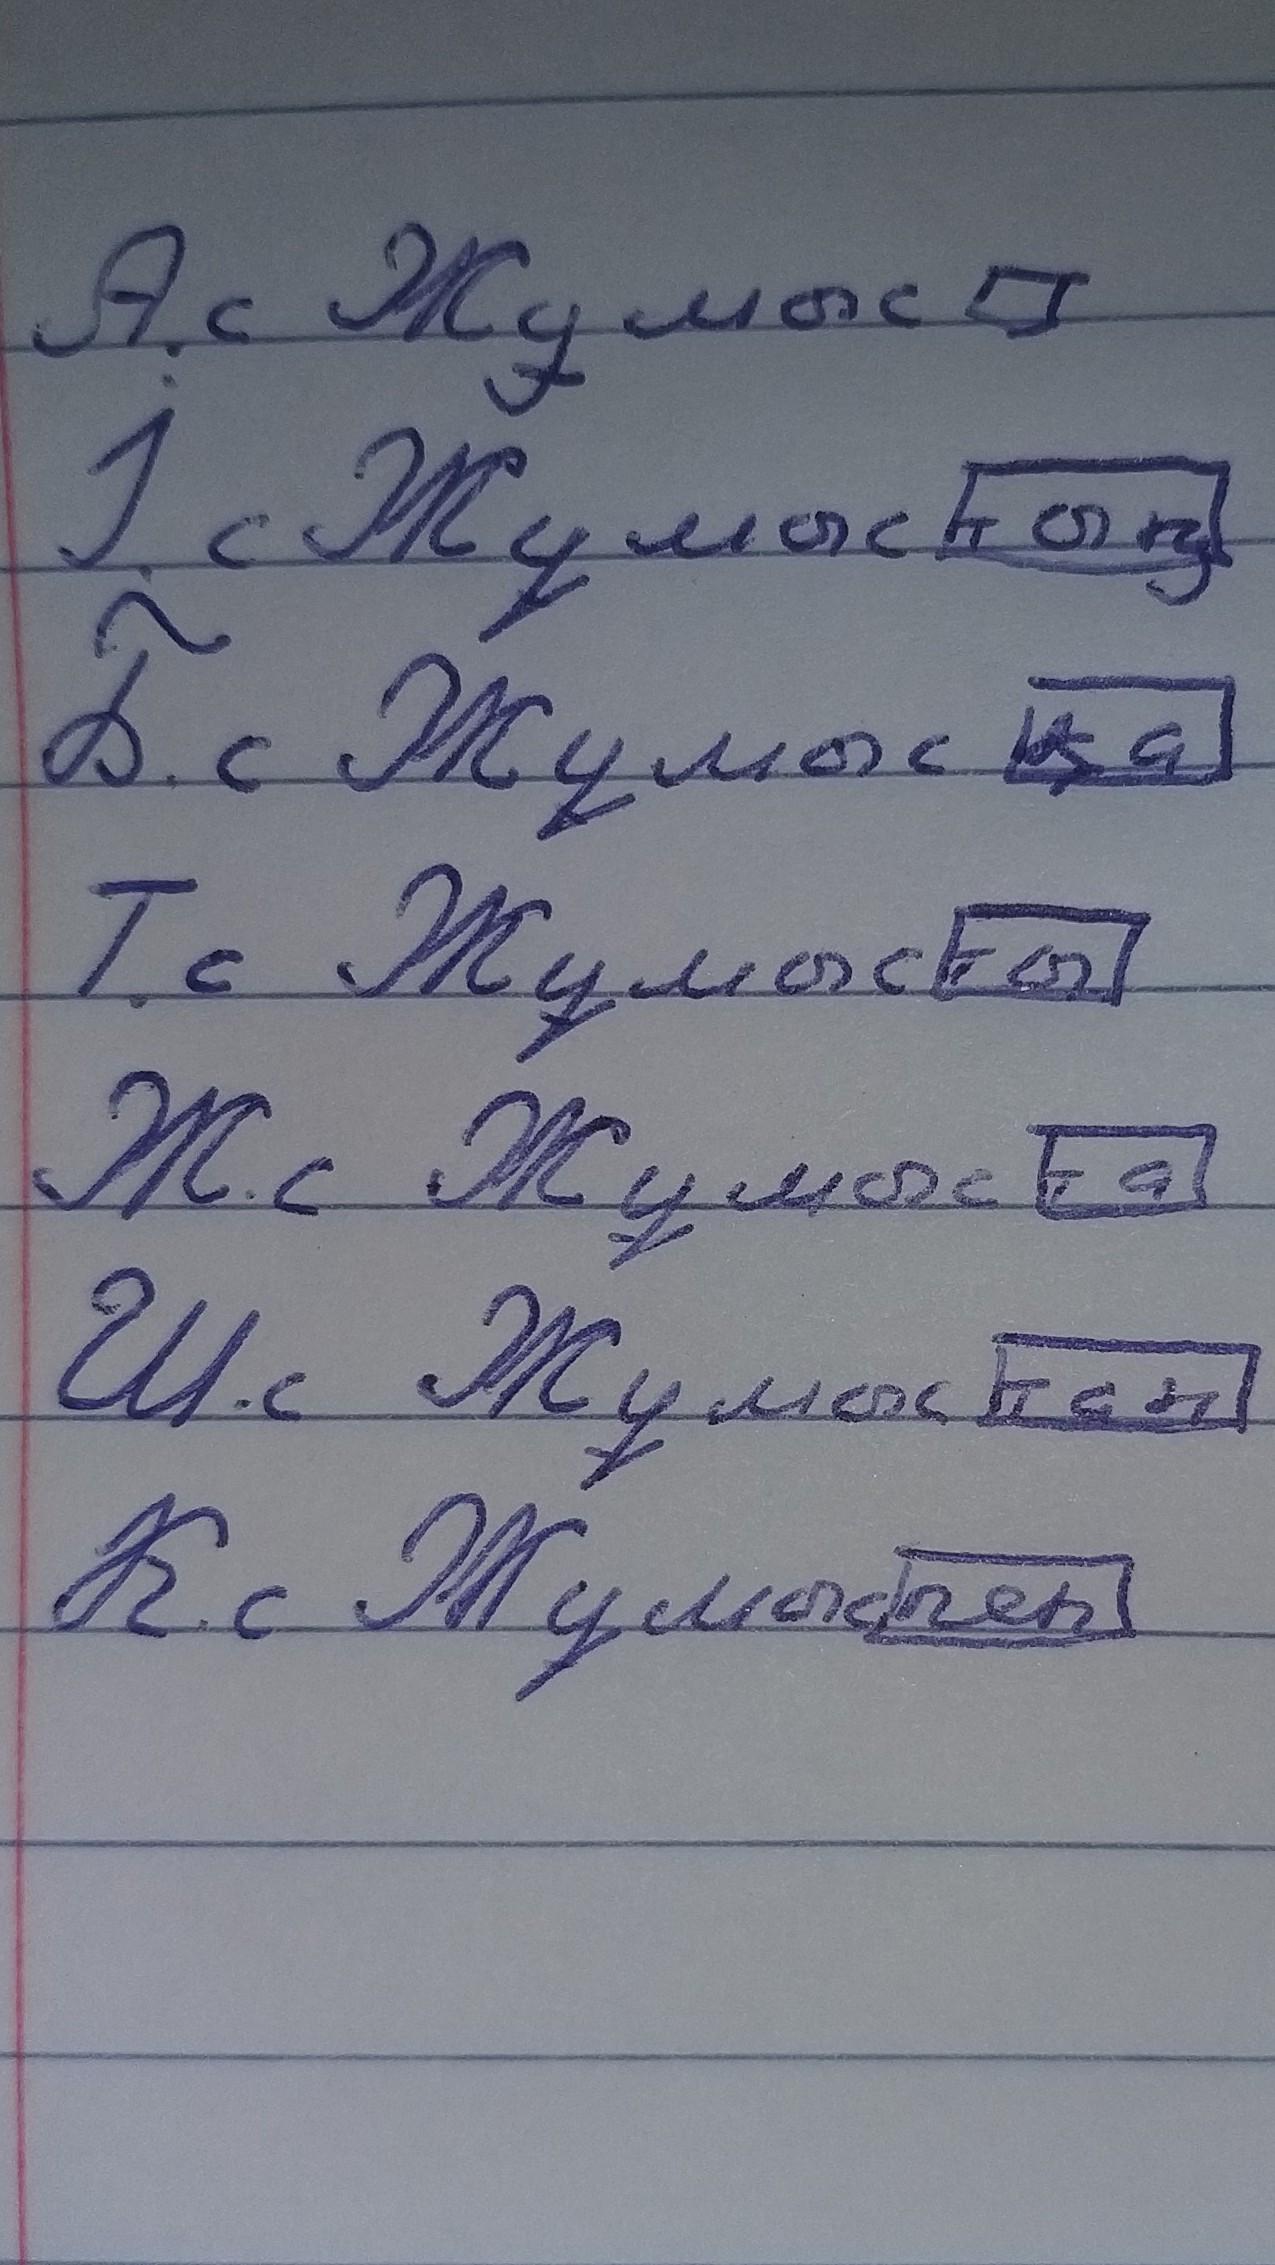 А.с Жұмыс
І.с Жұмыстың
Б.с Жұмысқа
Т.с Жұмысты
Ж.с Жұмыста
Ш.с Жұмыстан
К.с Жұмыспен